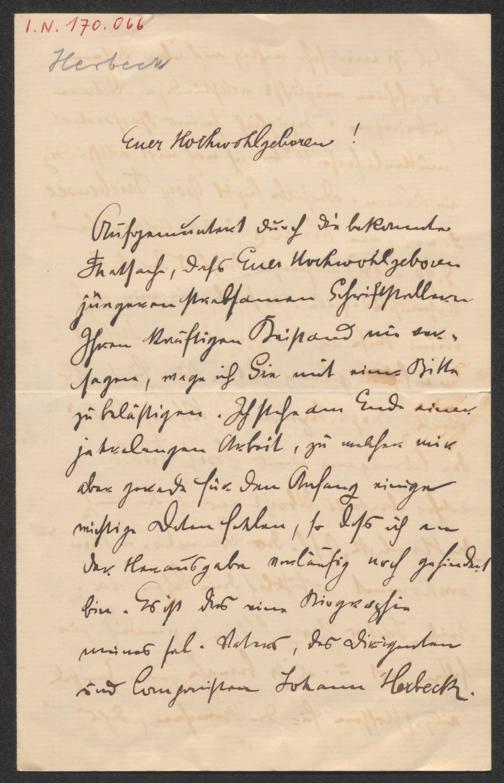 I.N. 170.066
Herbeck
Euer Hochwohlgeboren !
Aufgemuntert durch die bekannte
Thatsache, daſs Euer Hochwohlgeboren
jüngeren strebsamen Schriftstellern
Ihren kräftigen Beistand nie ver-
sagen, wage ich Sie mit einer Bitte
zu belästigen. Ich stehe am Ende einer
jahrelangen Arbeit, zu welcher mir
aber gerade für den Anfang einige
wichtige Daten fehlen, so daſs ich an
der Herausgabe vorläufig noch gehindert
bin. Es ist dies eine Biographie
meines sel. Vaters, des Dirigenten
und Componisten Johann Herbeck.